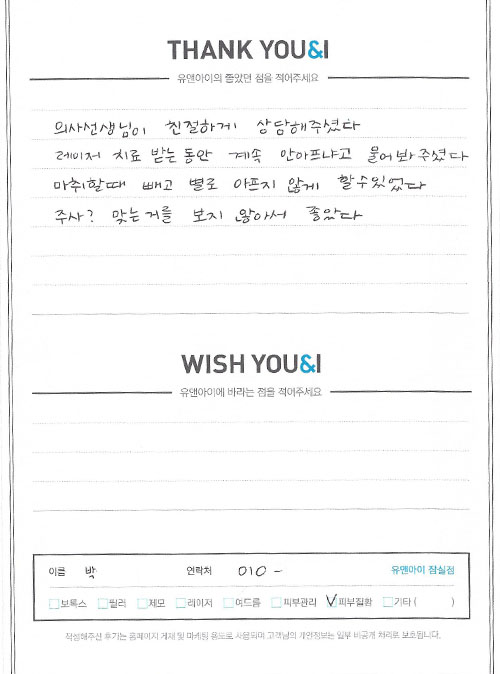 THANK YOU&I
유앤아이의 좋았던 점을 적어주세요
의사선생님이 친절하게 상담해주셨다
레이저 치료 받는동안 계속 안아프냐고 물어봐주셨다
마취할때 빼고 별로 아프지 않게 할수있었다
주사? 맞는거를 보지 않아서 좋았다
WISH YOU&I
유앤아이에 바라는 점을 적어주세요
이름 박 연락처 010 - 유앤아이 잠실점
보톡스 필러 제모 레이저 여드름 피부관리 피부질환 기타 ( )
작성해주신 후기는 홈페이지 게재 및 마케팅 용도로 사용되며 고객님의 개인정보는 일부 비공개 처리로 보호됩니다.